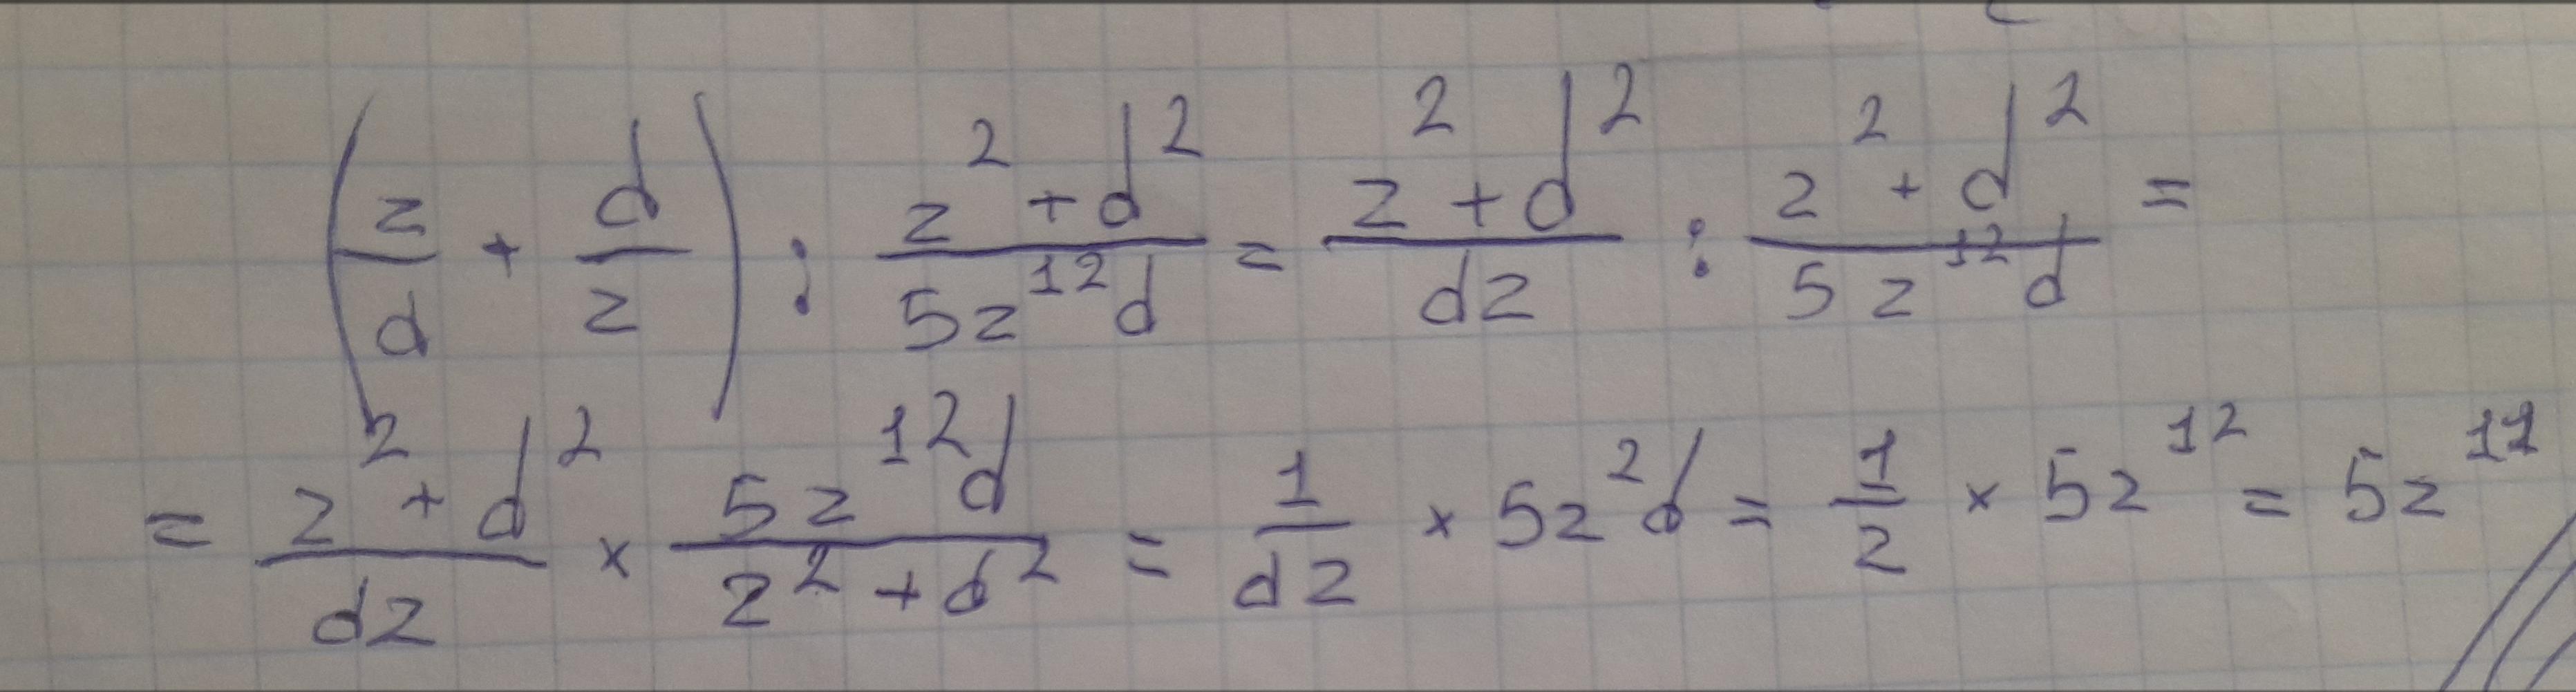 (z/d + d/z) : (z² + d²)/(5z¹²d) = (z² + d²)/(dz) : (z² + d²)/(5z¹²d) =
= (z² + d²)/(dz) × (5z¹²d)/(z² + d²) = 1/(dz) × 5z²d = 1/z × 5z¹² = 5z¹¹